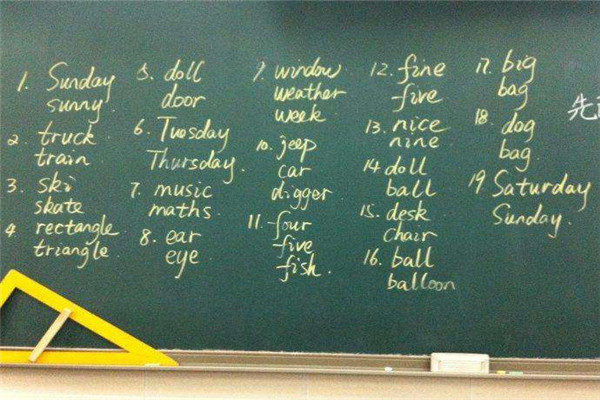 1. Sunday
sunny.
2. truck
train
3. Ski
skate
4 rectangle
triangle.
5. doll
door
6. Tuesday
Thursday.
7. music
maths.
8. ear
eye
9. window
weather
week.
10. jeep
car
digger
11. four
five
fish.
12. fine
five
13. nice
nine
14 doll
ball
15. desk
chair
16. ball
balloon
17. big
bag
18. dog
bag.
19 Saturday
Sunday.
先